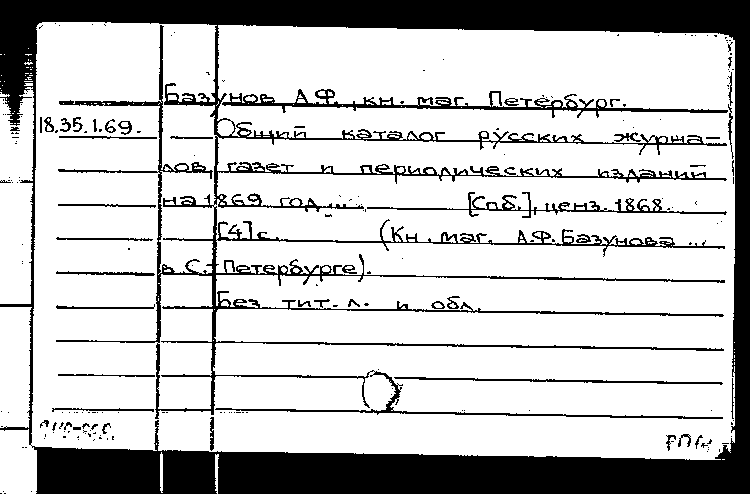 Базунов, А.Ф., кн. маг. Петербург.
18.35.1.69. Общий каталог русских журна=
лов, газет и периодических изданий
на 1869 год ... [Спб.], ценз. 1868.
[4] с. (Кн. маг. А.Ф. Базунова ...
в С.-Петербурге).
Без тит. л. и обл.